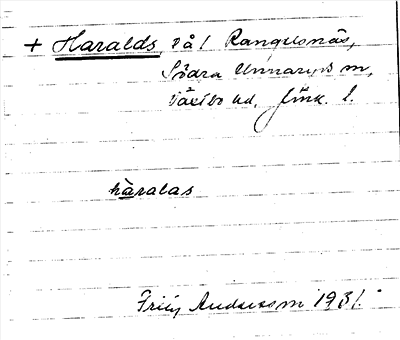 + Haralds, på 1 Rangelsnäs,
Södra Unnaryds sn,
Västbo hd, Jönk. l.
hàralas
Fritz Andersson 1931.